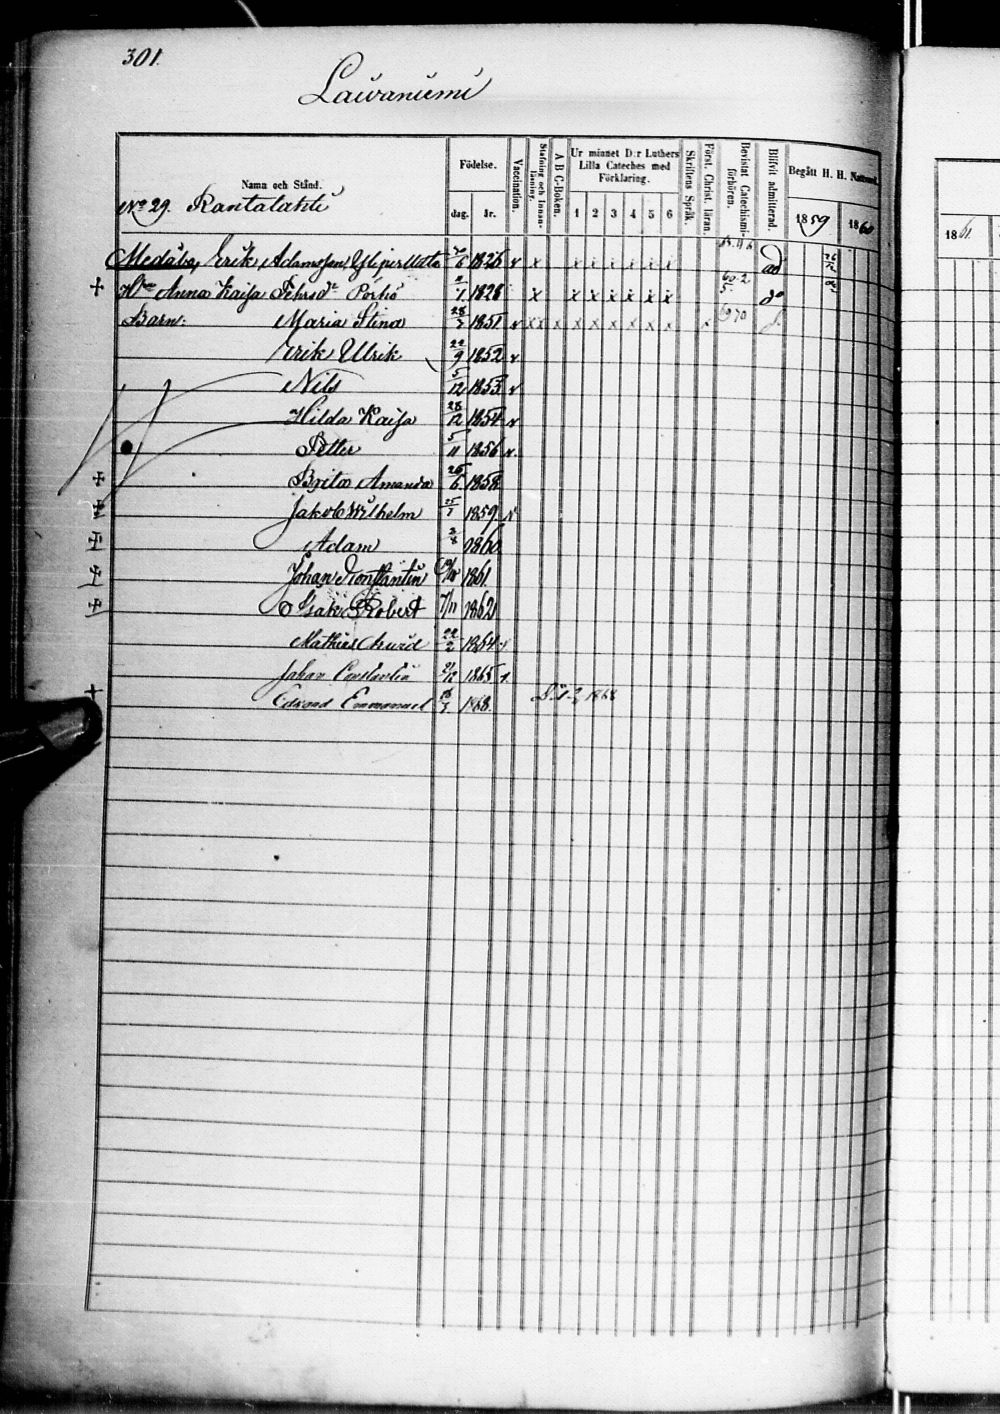 301.
Laivaniemi
Namn och Stånd.
Födelse.
dag. år.
Vaccination.
Stafning och Innanläsning.
A B C-Boken.
Ur minnet D:r Luthers Lilla Cateches med Förklaring.
1 2 3 4 5 6
Skriftens Språk.
Först. Christ. läran.
Bevistat Catechismiförhören.
Blifvit admitterad.
Begått H. H. Nattvard.
1859 1860
1861
No 29. Rantalahti
Erik Adamsson 1826 v x x x x x x x
+ Anna Kaisa Porkō 1828 x x x x x x x do
Barn: Maria Stina 28/7 1851 v x x x x x x x x x x
Erik Ulrik 22/9 1852 v
Nils 5/12 1853 v
Hilda Kaisa 28/12 1854 v
Petter 5/11 1856 v.
+ Brita Amanda 26/6 1858
+ Jakob Wilhelm 25/1 1859 v
+ Adam 2/8 1860
+ Johan Konstantin 1861.
+ Isak Robert 7/11 1862
Mathias 22/2 1864 v
Johan Constantin 21/12 1865 v.
+ Edvard Emmanuel 1868. 1868